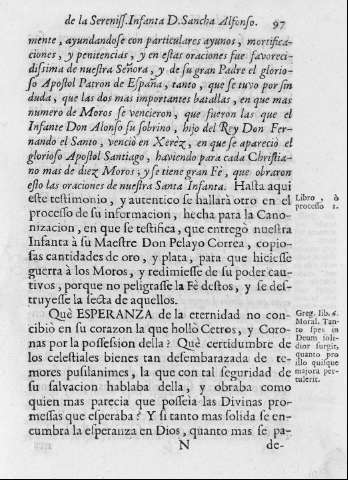 de la Sereniss. Infanta D. Sancha Alfonso. 97
mente, ayundandose con particulares ayunos, mortifica-
ciones, y penitencias, y en estas oraciones fue favoreci-
dissima de nuestra Señora, y de su gran Padre el glorio-
so Apostol Patron de España, tanto, que se tuvo por sin
duda, que las dos mas importantes batallas, en que mas
numero de Moros se vencieron, que fueron las que el
Infante Don Alonso su sobrino, hijo del Rey Don Fer-
nando el Santo, venciò en Xerèz, en que se apareciò el
glorioso Apostol Santiago, haviendo para cada Christia-
no mas de diez Moros; y se tiene gran Fè, que obraron
esto las oraciones de nuestra Santa Infanta. Hasta aqui
este testimonio, y autentico se hallarà otro en el
processo de su informacion, hecha para la Cano-
nizacion, en que se testifica, que entregò nuestra
Infanta à su Maestre Don Pelayo Correa, copio-
sas cantidades de oro, y plata, para que hiciesse
guerra à los Moros, y redimiesse de su poder cau-
tivos, porque no peligrasse la Fè destos, y se des-
truyesse la secta de aquellos.
Libro, ò
processo 1.
Què ESPERANZA de la eternidad no con-
cibiò en su corazon la que hollò Cetros, y Coro-
nas por la possession della? Què certidumbre de
los celestiales bienes tan desembarazada de te-
mores pusilanimes, la que con tal seguridad de
su salvacion hablaba della, y obraba como
quien mas parecia que posseìa las Divinas pro-
messas que esperaba? Y si tanto mas solida se en-
cumbra la esperanza en Dios, quanto mas se pa-
Greg. lib. 6.
Moral. Tan-
to spes in
Deum soli-
dior surgit,
quanto pro
illo quisque
majora per-
tulerit.
N de-